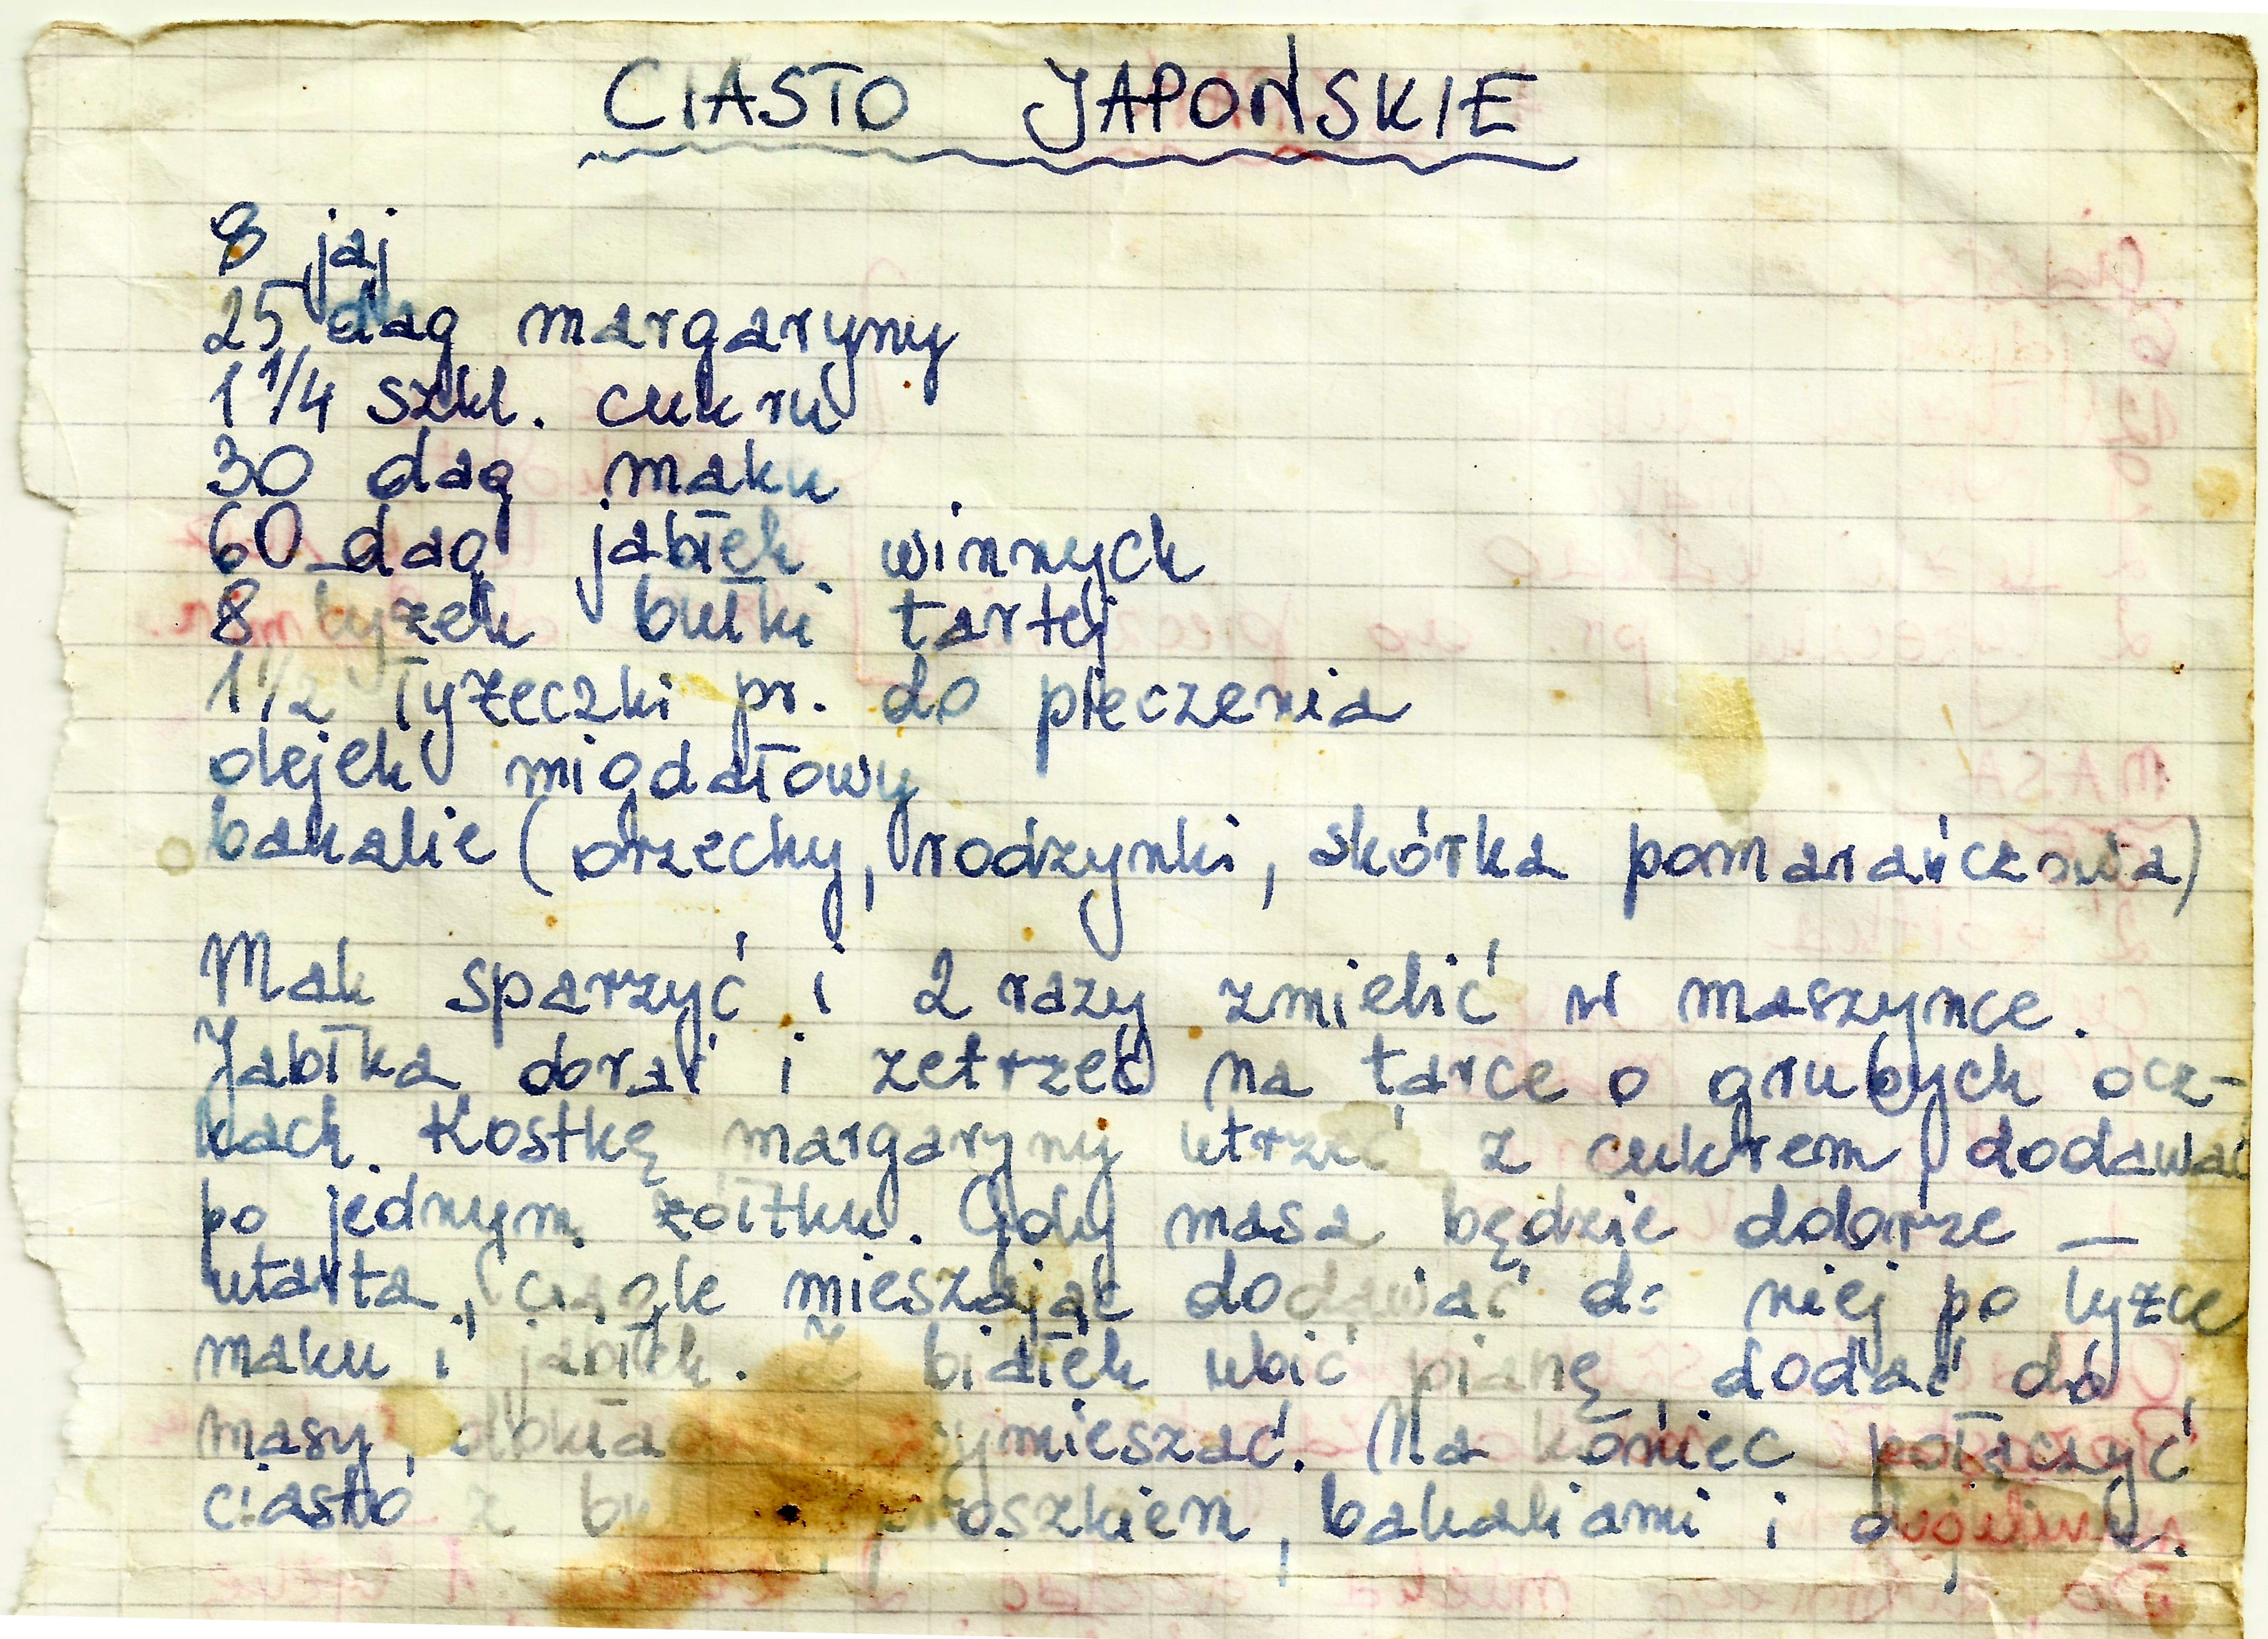 CIASTO JAPOŃSKIE
8 jaj
25 dag margaryny
1 1/4 szkl. cukru
30 dag maku
60 dag jabłek winnych
8 łyżek bułki tartej
1 1/2 łyżeczki pr. do pieczenia
olejek migdałowy
bakalie (orzechy, rodzynki, skórka pomarańczowa)
Mak sparzyć i 2 razy zmielić w maszynce.
Jabłka obrać i zetrzeć na tarce o grubych ocz-
kach. Kostkę margaryny utrzeć z cukrem, dodawać
po jednym żółtku. Gdy masa będzie dobrze —
utarta, ciągle mieszając dodawać do niej po łyżce
maku i jabłek. Z białek ubić pianę, dodać do
masy, wymieszać. Na koniec połączyć
ciasto z proszkiem, bakaliami i